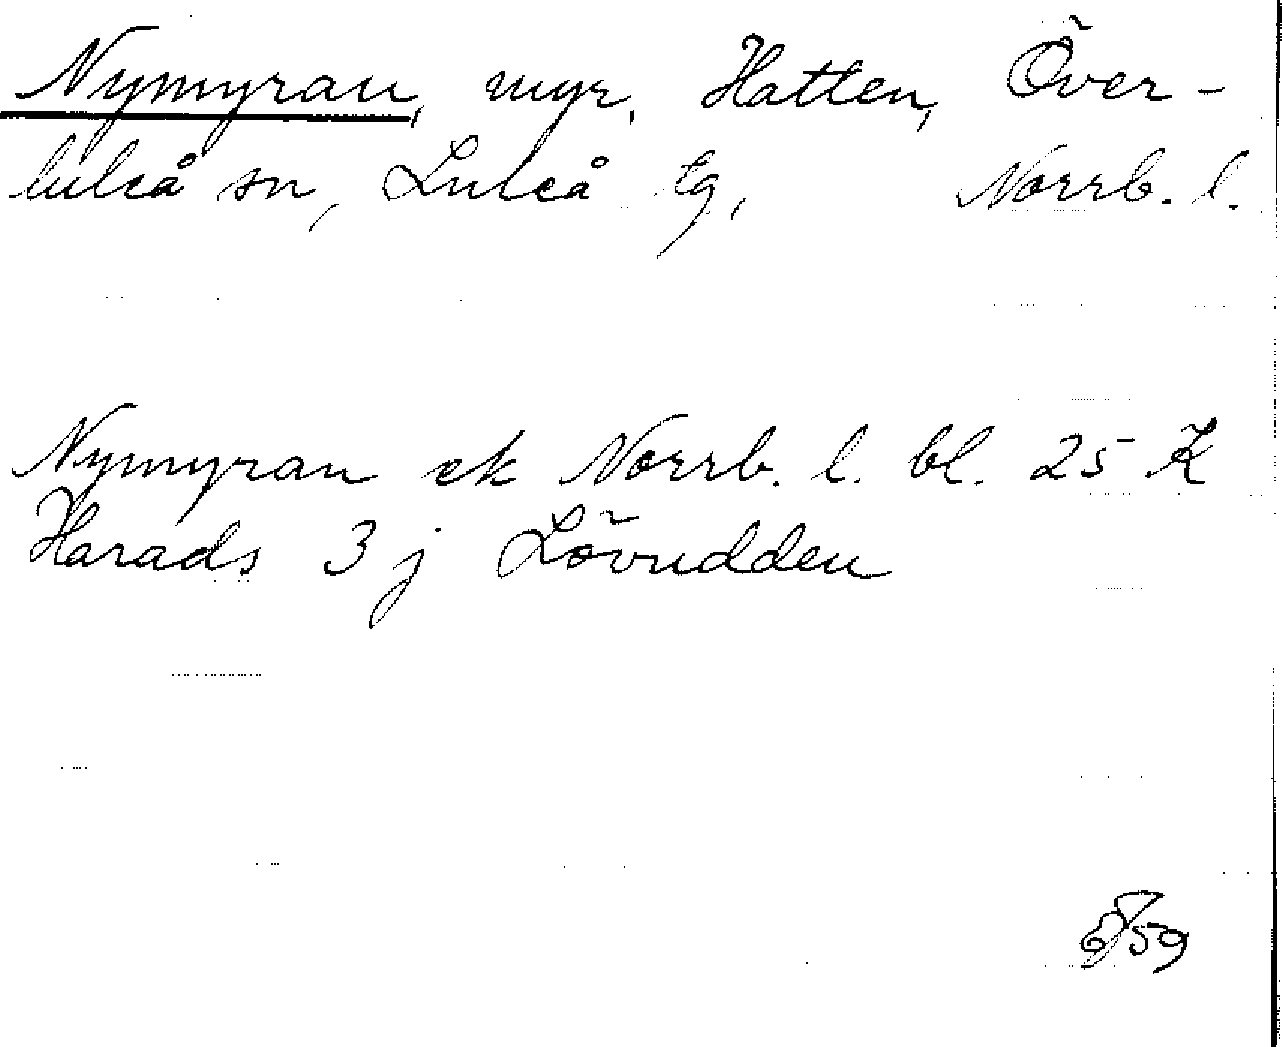 Nymyran, myr, Hatten, Över-
luleå sn, Luleå tg, Norrb. l.
Nymyran ek Norrb. l. bl. 25 K
Harads 3 j Lövudden
/59